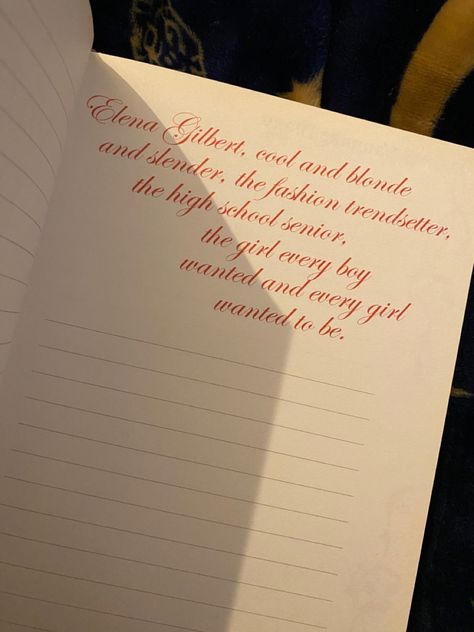 Elena Gilbert, cool and blonde
and slender, the fashion trendsetter,
the high school senior,
the girl every boy
wanted and every girl
wanted to be.